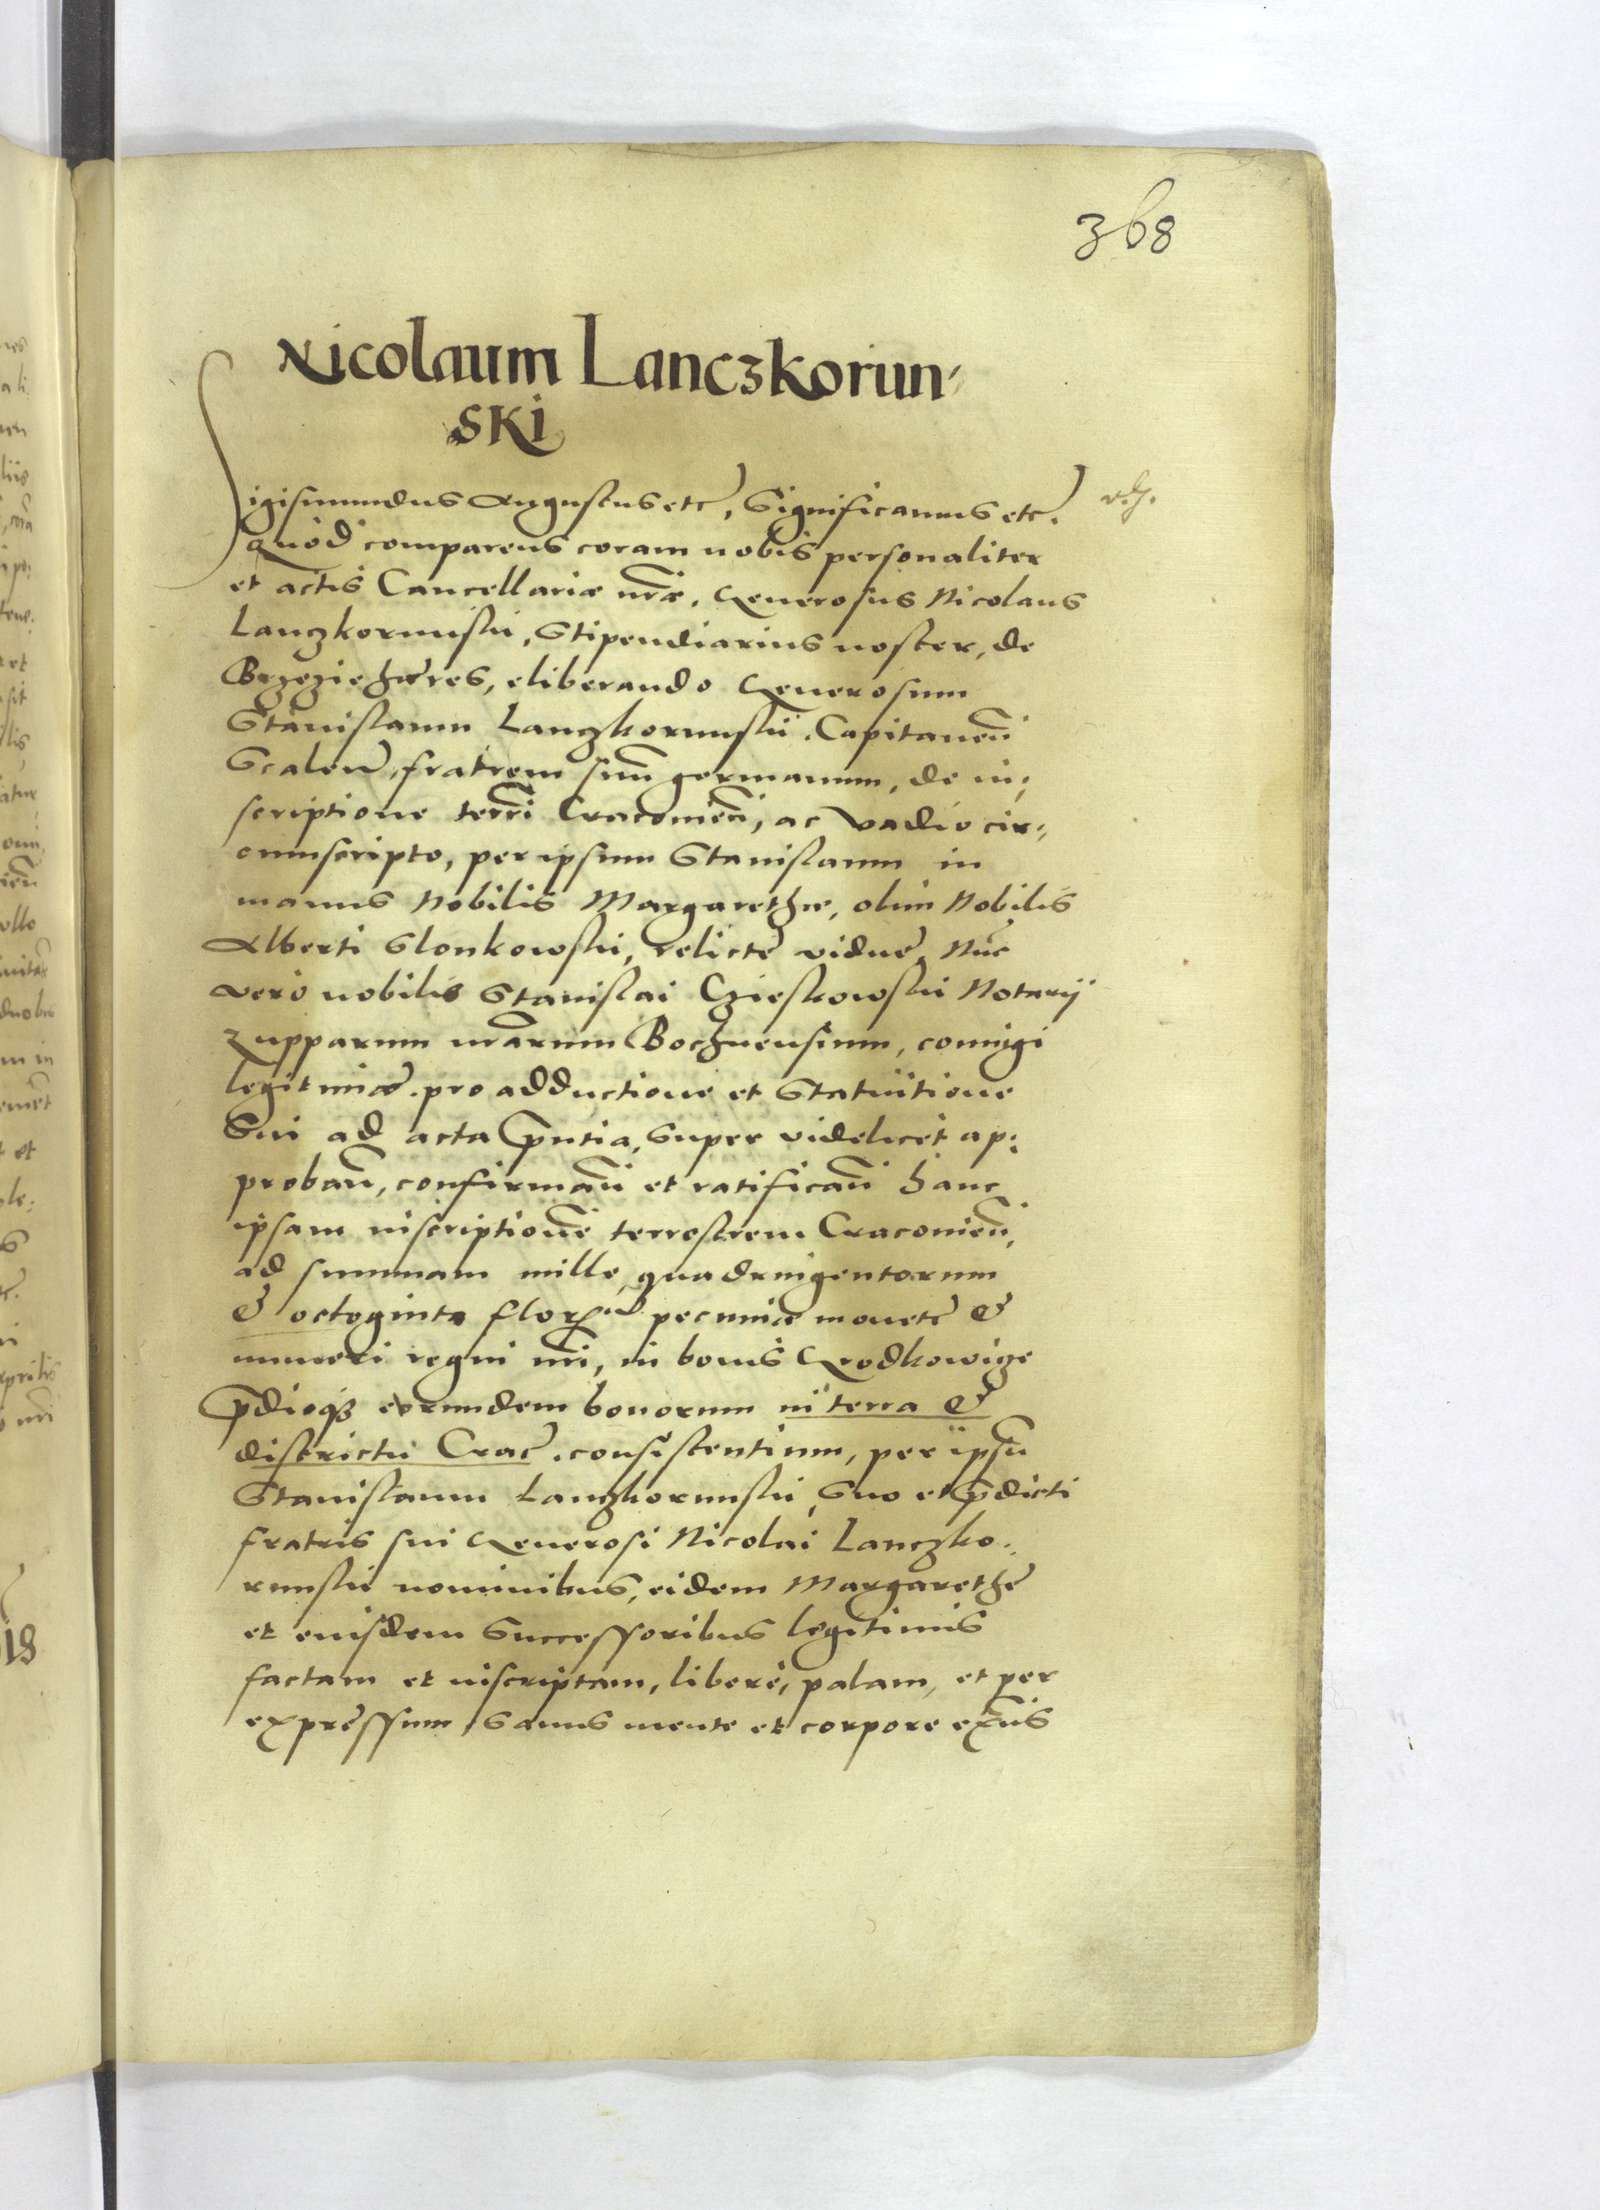 368
Nicolaum Lanczkorun-
ski
Sigismundus Augustus etc, Significamus etc.
Quod comparens coram nobis personaliter
et actis Cancellariæ nr̃æ, Generosus Nicolaus
Lanczkorunski, Stipendiarius noster, de
Brzezie hæres, eliberando Generosum
Stanislaum Lanczkorunskii. Capitaneũ
Scalen̄, fratrem suũ germanum, de in-
scriptione terrr̃i Cracovien̄, ac vadio cir-
cumscripto, per ipsum Stanislaum in
manus Nobilis Margarethæ, olim Nobilis
Alberti Slonkowski, relicte vidue, Nũc
vero nobilis Stanislai Czieskowski Notarij
Zupparum nr̃arum Bochnensium, coniugi
legitimæ. pro adductione et Statuitione
Sui ad acta p̃ntia, Super videlicet ap-
proban̄, confirman̄ et ratifican̄ hanc
ipsam inscriptionẽ terrestrem Cracovien̄,
ad summam mille quadringentorum
& octoginta flor. pecuniæ monete &
numeri regni nr̃i, in bonis Grodkowicze
p̃dioq3 eorundem bonorum in terra &
districtu Crac. consistentium, per ipsũ
Stanislaum Lanczkorunski, Suo et p̃dicti
fratris sui Generosi Nicolai Lanczko-
runskii nominibus, eidem Margarethe
et eiusdem Successoribus legitimis
factam et inscriptam, libere, palam, et per
expressum, Sanus mente et corpore ex̃ns